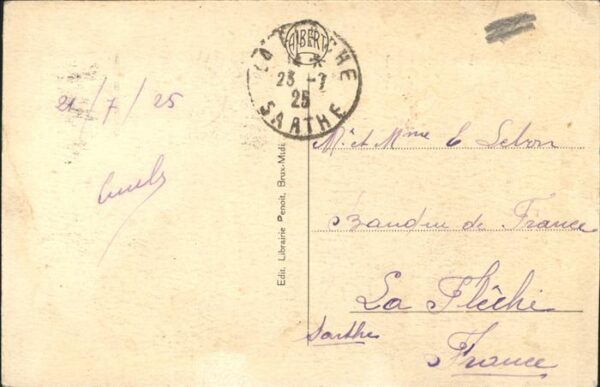 ALBERT
LA FLÈCHE
23 -7
25
SARTHE
21/7/25
Edit. Librairie Penoit, Brux-Midi
Mr et Mme E Lebon
Banque de France
La Flêche
Sarthe
France